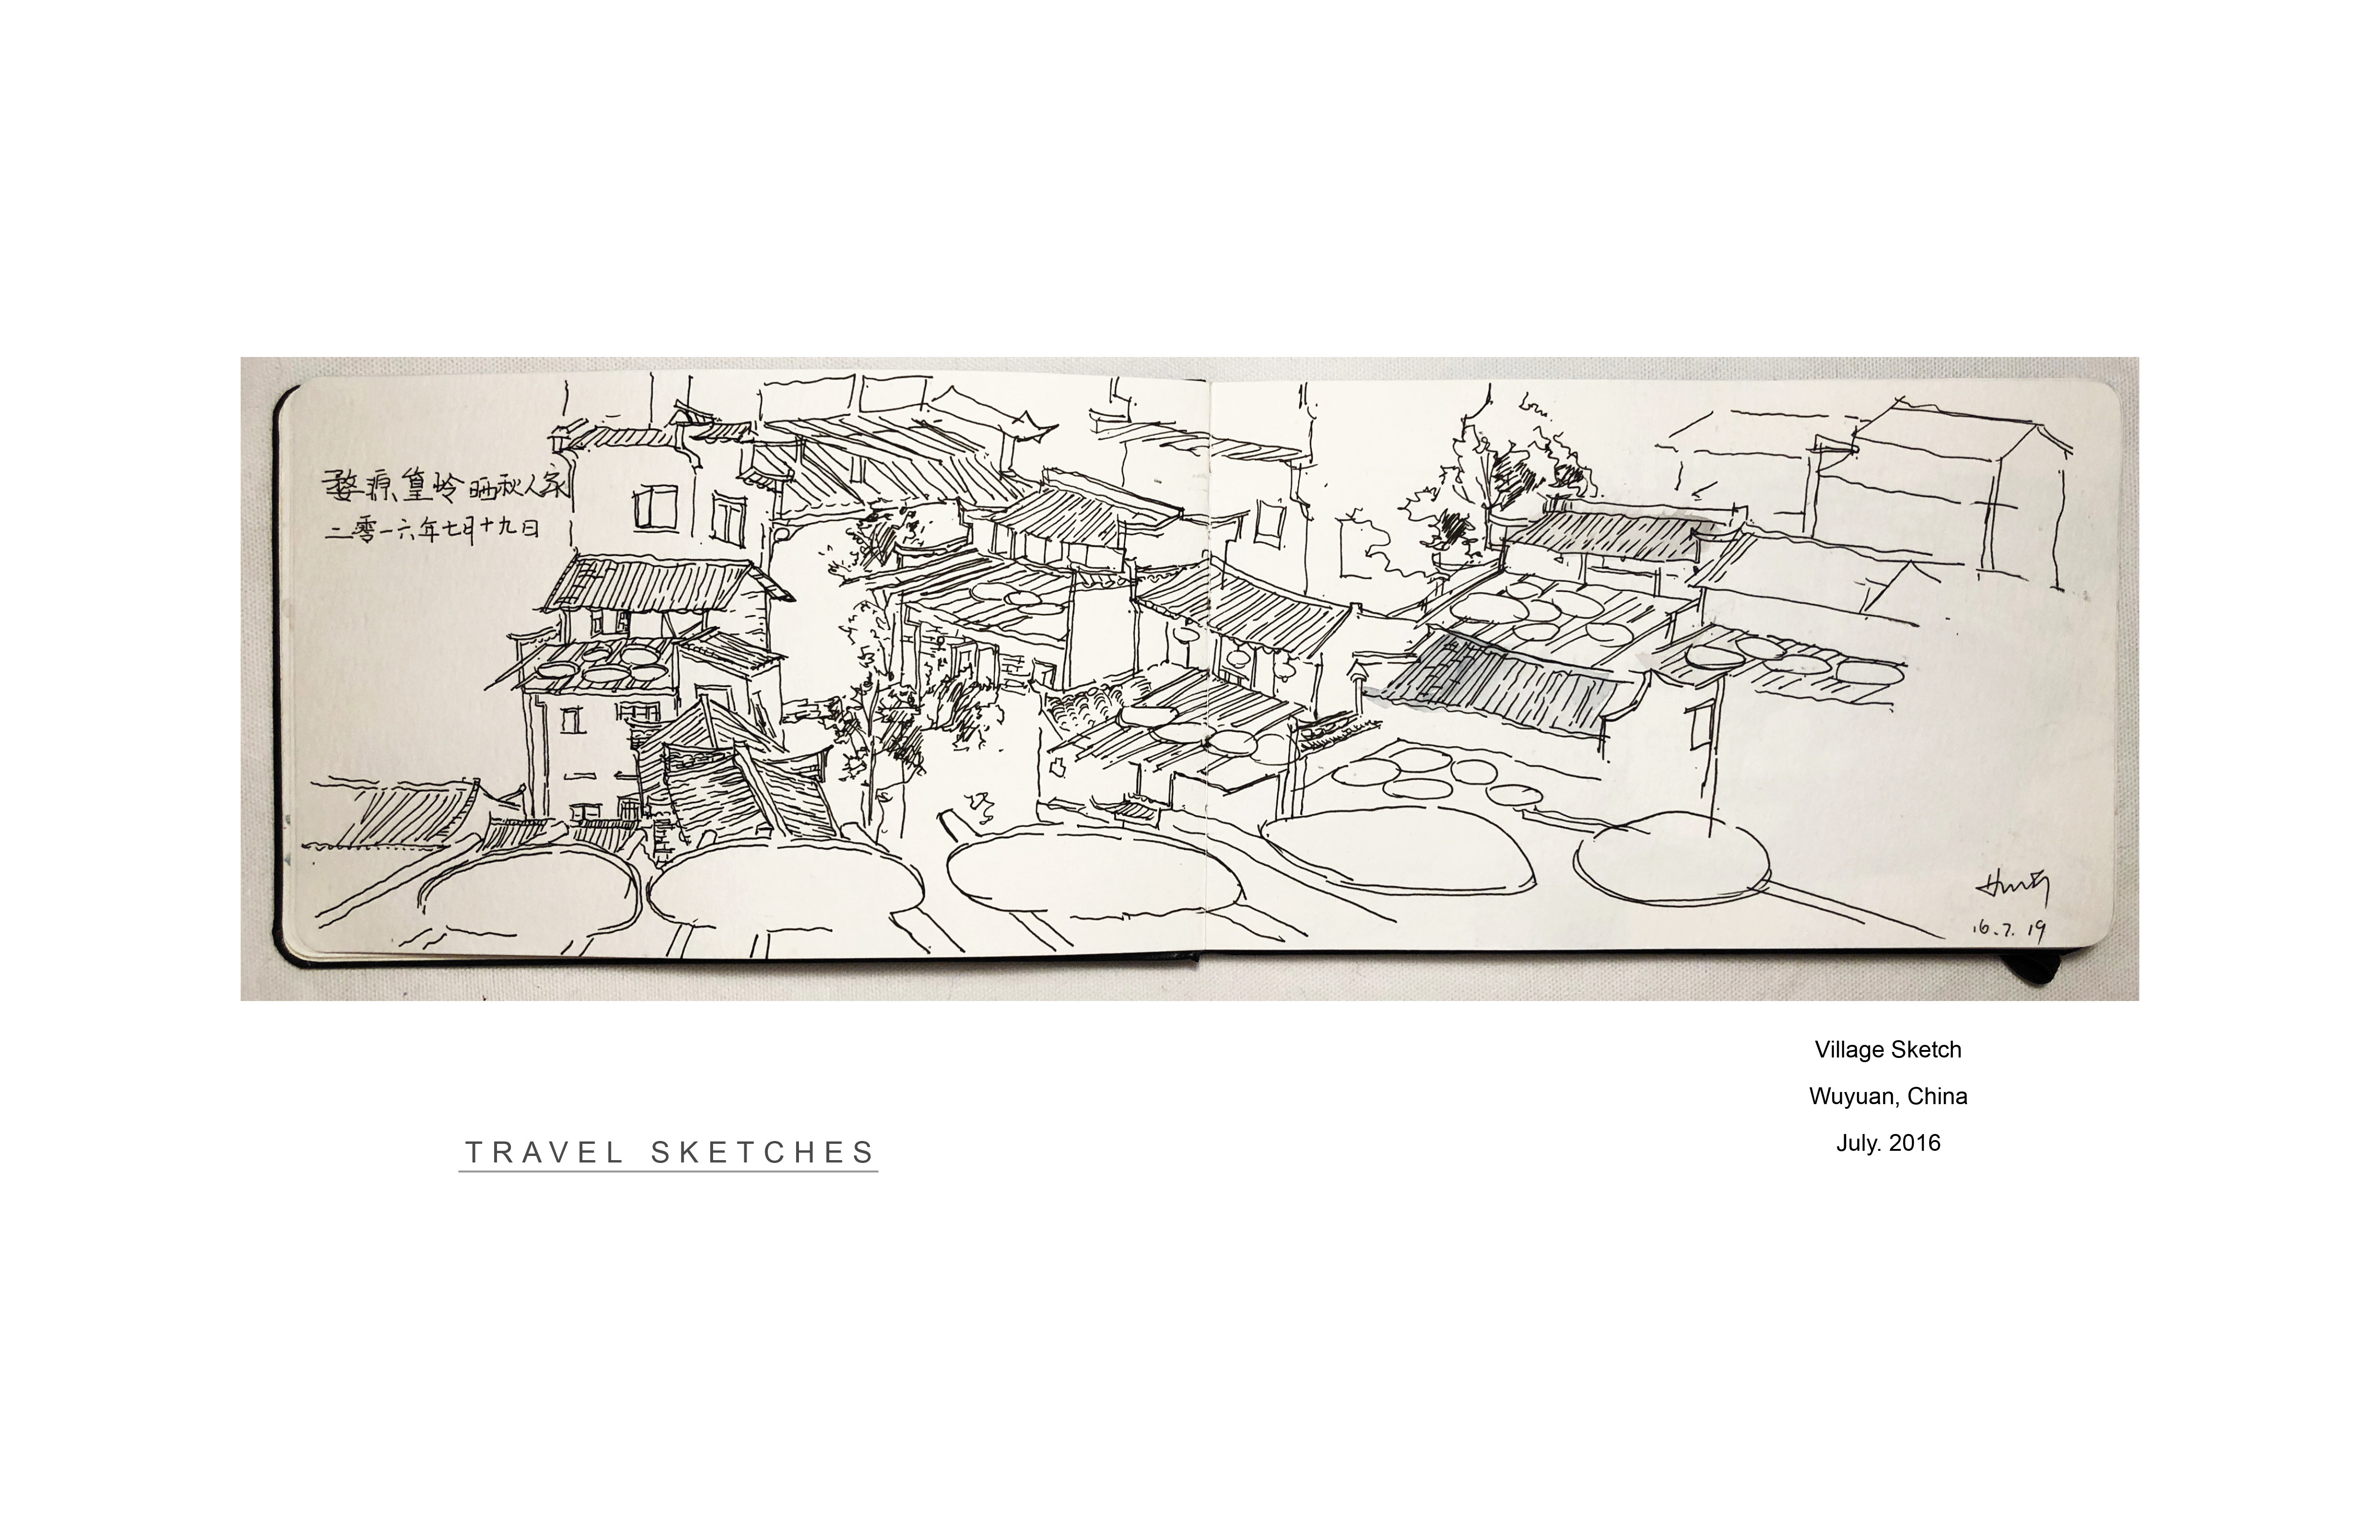 婺源篁岭晒秋人家
二零一六年七月十九日
16.7.19
Village Sketch
Wuyuan, China
July. 2016
TRAVEL SKETCHES